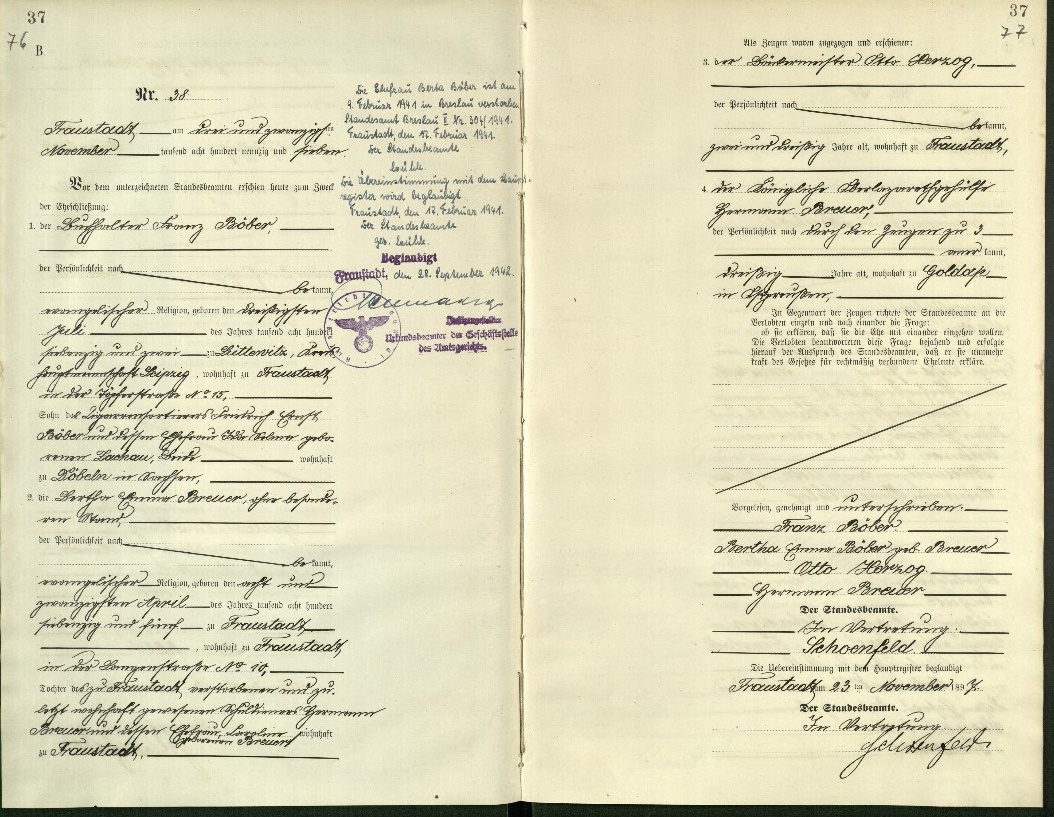 37
76
B.
Nr. 38
Fraustadt am drei und zwanzigsten
November tausend acht hundert neunzig und sieben
Vor dem unterzeichneten Standesbeamten erschien heute zum Zweck
der Eheschließung:
1. der Buchhalter Franz Böber,
der Persönlichkeit nach
bekannt,
evangelischer Religion, geboren den dreißigsten
Juli des Jahres tausend acht hundert
siebenzig und zwei zu Littewitz, Kreis-
hauptmannschaft Leipzig, wohnhaft zu Fraustadt,
in der Töpferstraße No 15,
Sohn des Zigarrensortierers Friedrich Ernst
Böber und dessen Ehefrau Ida Selma gebo-
renen Lachau, beide wohnhaft
zu Döbeln in Sachsen,
2. die Bertha Emma Breuer, ohne besonde-
ren Stand,
der Persönlichkeit nach
bekannt,
evangelischer Religion, geboren den acht und
zwanzigsten April des Jahres tausend acht hundert
siebenzig und fünf zu Fraustadt
, wohnhaft zu Fraustadt,
in der Langenstraße No 10,
Tochter des zu Fraustadt verstorbenen und zu-
letzt wohnhaft gewesenen Schuldieners Hermann
Breuer und dessen Ehefrau, Caroline wohnhaft
geborenen Breuer
zu Fraustadt.
Die Ehefrau Berta Böber ist am
9. Februar 1941 in Breslau verstorben
Standesamt Breslau II Nr. 304/1941.
Fraustadt, den 17. Februar 1941.
Der Standesbeamte
Die Übereinstimmung mit dem Haupt-
register wird beglaubigt
Fraustadt, den 17. Februar 1941.
Der Standesbeamte
gez.
Beglaubigt
Fraustadt, den 28. September 1942.
Justizangestellter
Urkundsbeamter der Geschäftsstelle
des Amtsgerichts.
37
77
Als Zeugen waren zugezogen und erschienen:
3. der Bäckermeister Otto Herzog,
der Persönlichkeit nach
bekannt,
zwei und dreißig Jahre alt, wohnhaft zu Fraustadt,
4. der Königliche Oberlazarethgehülfe
Hermann Breuer,
der Persönlichkeit nach durch den Zeugen zu 3
anerkannt,
dreißig Jahre alt, wohnhaft zu Goldap,
in Ostpreußen,
In Gegenwart der Zeugen richtete der Standesbeamte an die
Verlobten einzeln und nach einander die Frage:
ob sie erklären, daß sie die Ehe mit einander eingehen wollen.
Die Verlobten beantworteten diese Frage bejahend und erfolgte
hierauf der Ausspruch des Standesbeamten, daß er sie nunmehr
kraft des Gesetzes für rechtmäßig verbundene Eheleute erkläre.
Vorgelesen, genehmigt und unterschrieben:
Franz Böber
Bertha Emma Böber geb. Breuer
Otto Herzog.
Hermann Breuer
Der Standesbeamte.
In Vertretung:
Schoenfeld.
Die Uebereinstimmung mit dem Hauptregister beglaubigt
Fraustadt am 23 ten November 1897.
Der Standesbeamte.
In Vertretung
Schoenfeld.